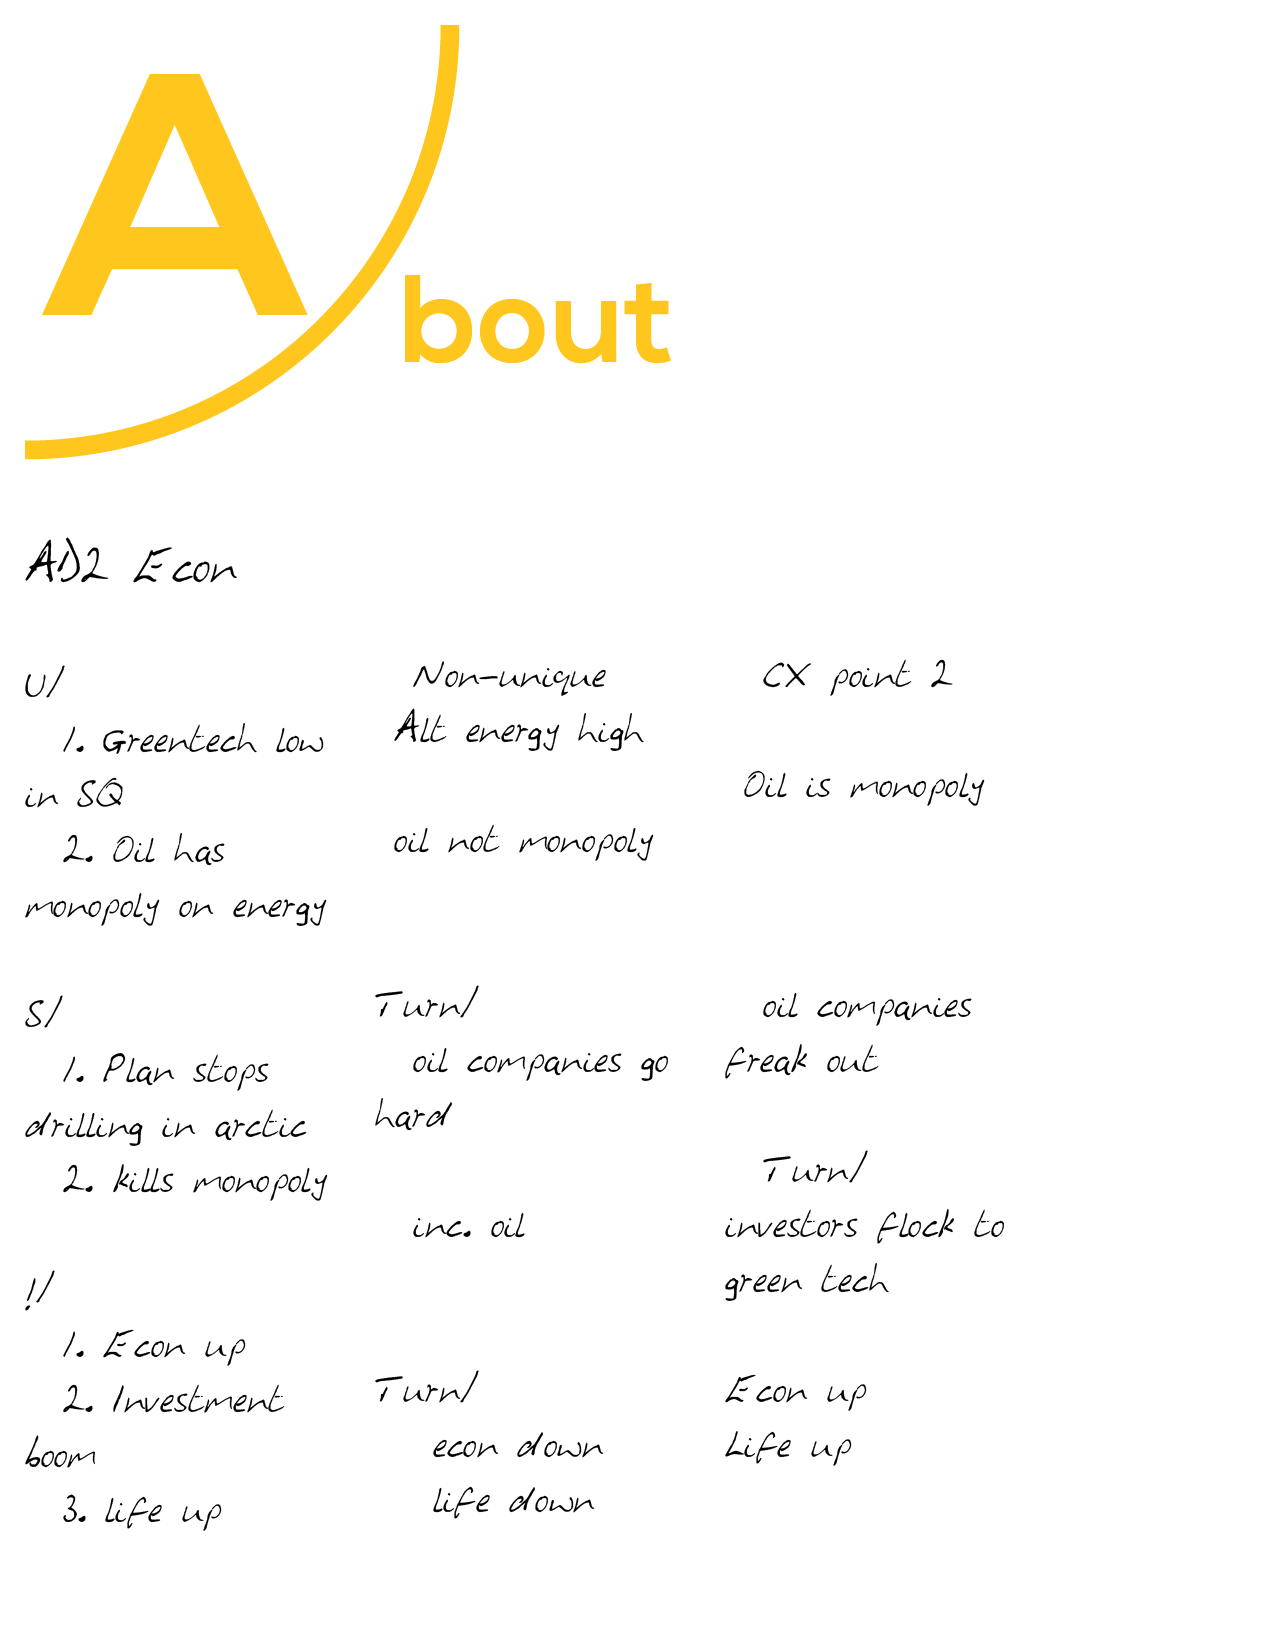 About
AD2 Econ
U/
1. Greentech low
in SQ
2. Oil has
monopoly on energy
S/
1. Plan stops
drilling in arctic
2. kills monopoly
!/
1. Econ up
2. Investment
boom
3. life up
Non-unique
Alt energy high
oil not monopoly
Turn/
oil companies go
hard
inc. oil
Turn/
econ down
life down
CX point 2
Oil is monopoly
oil companies
freak out
Turn/
investors flock to
green tech
Econ up
Life up